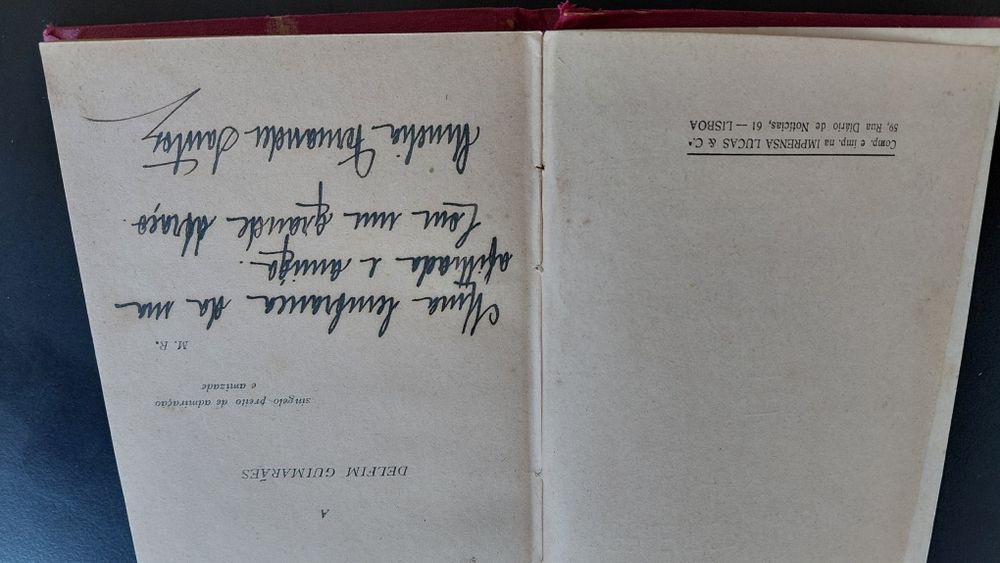 Comp. e imp. na IMPRENSA LUCAS & C.ª
59, Rua Diário de Notícias, 61 — LISBOA
A
DELFIM GUIMARÃES
singelo preito de admiração
e amizade
M. R.
Uma lembrança da sua
afilhada e amiga.
Com um grande abraço.
Fernanda Santos